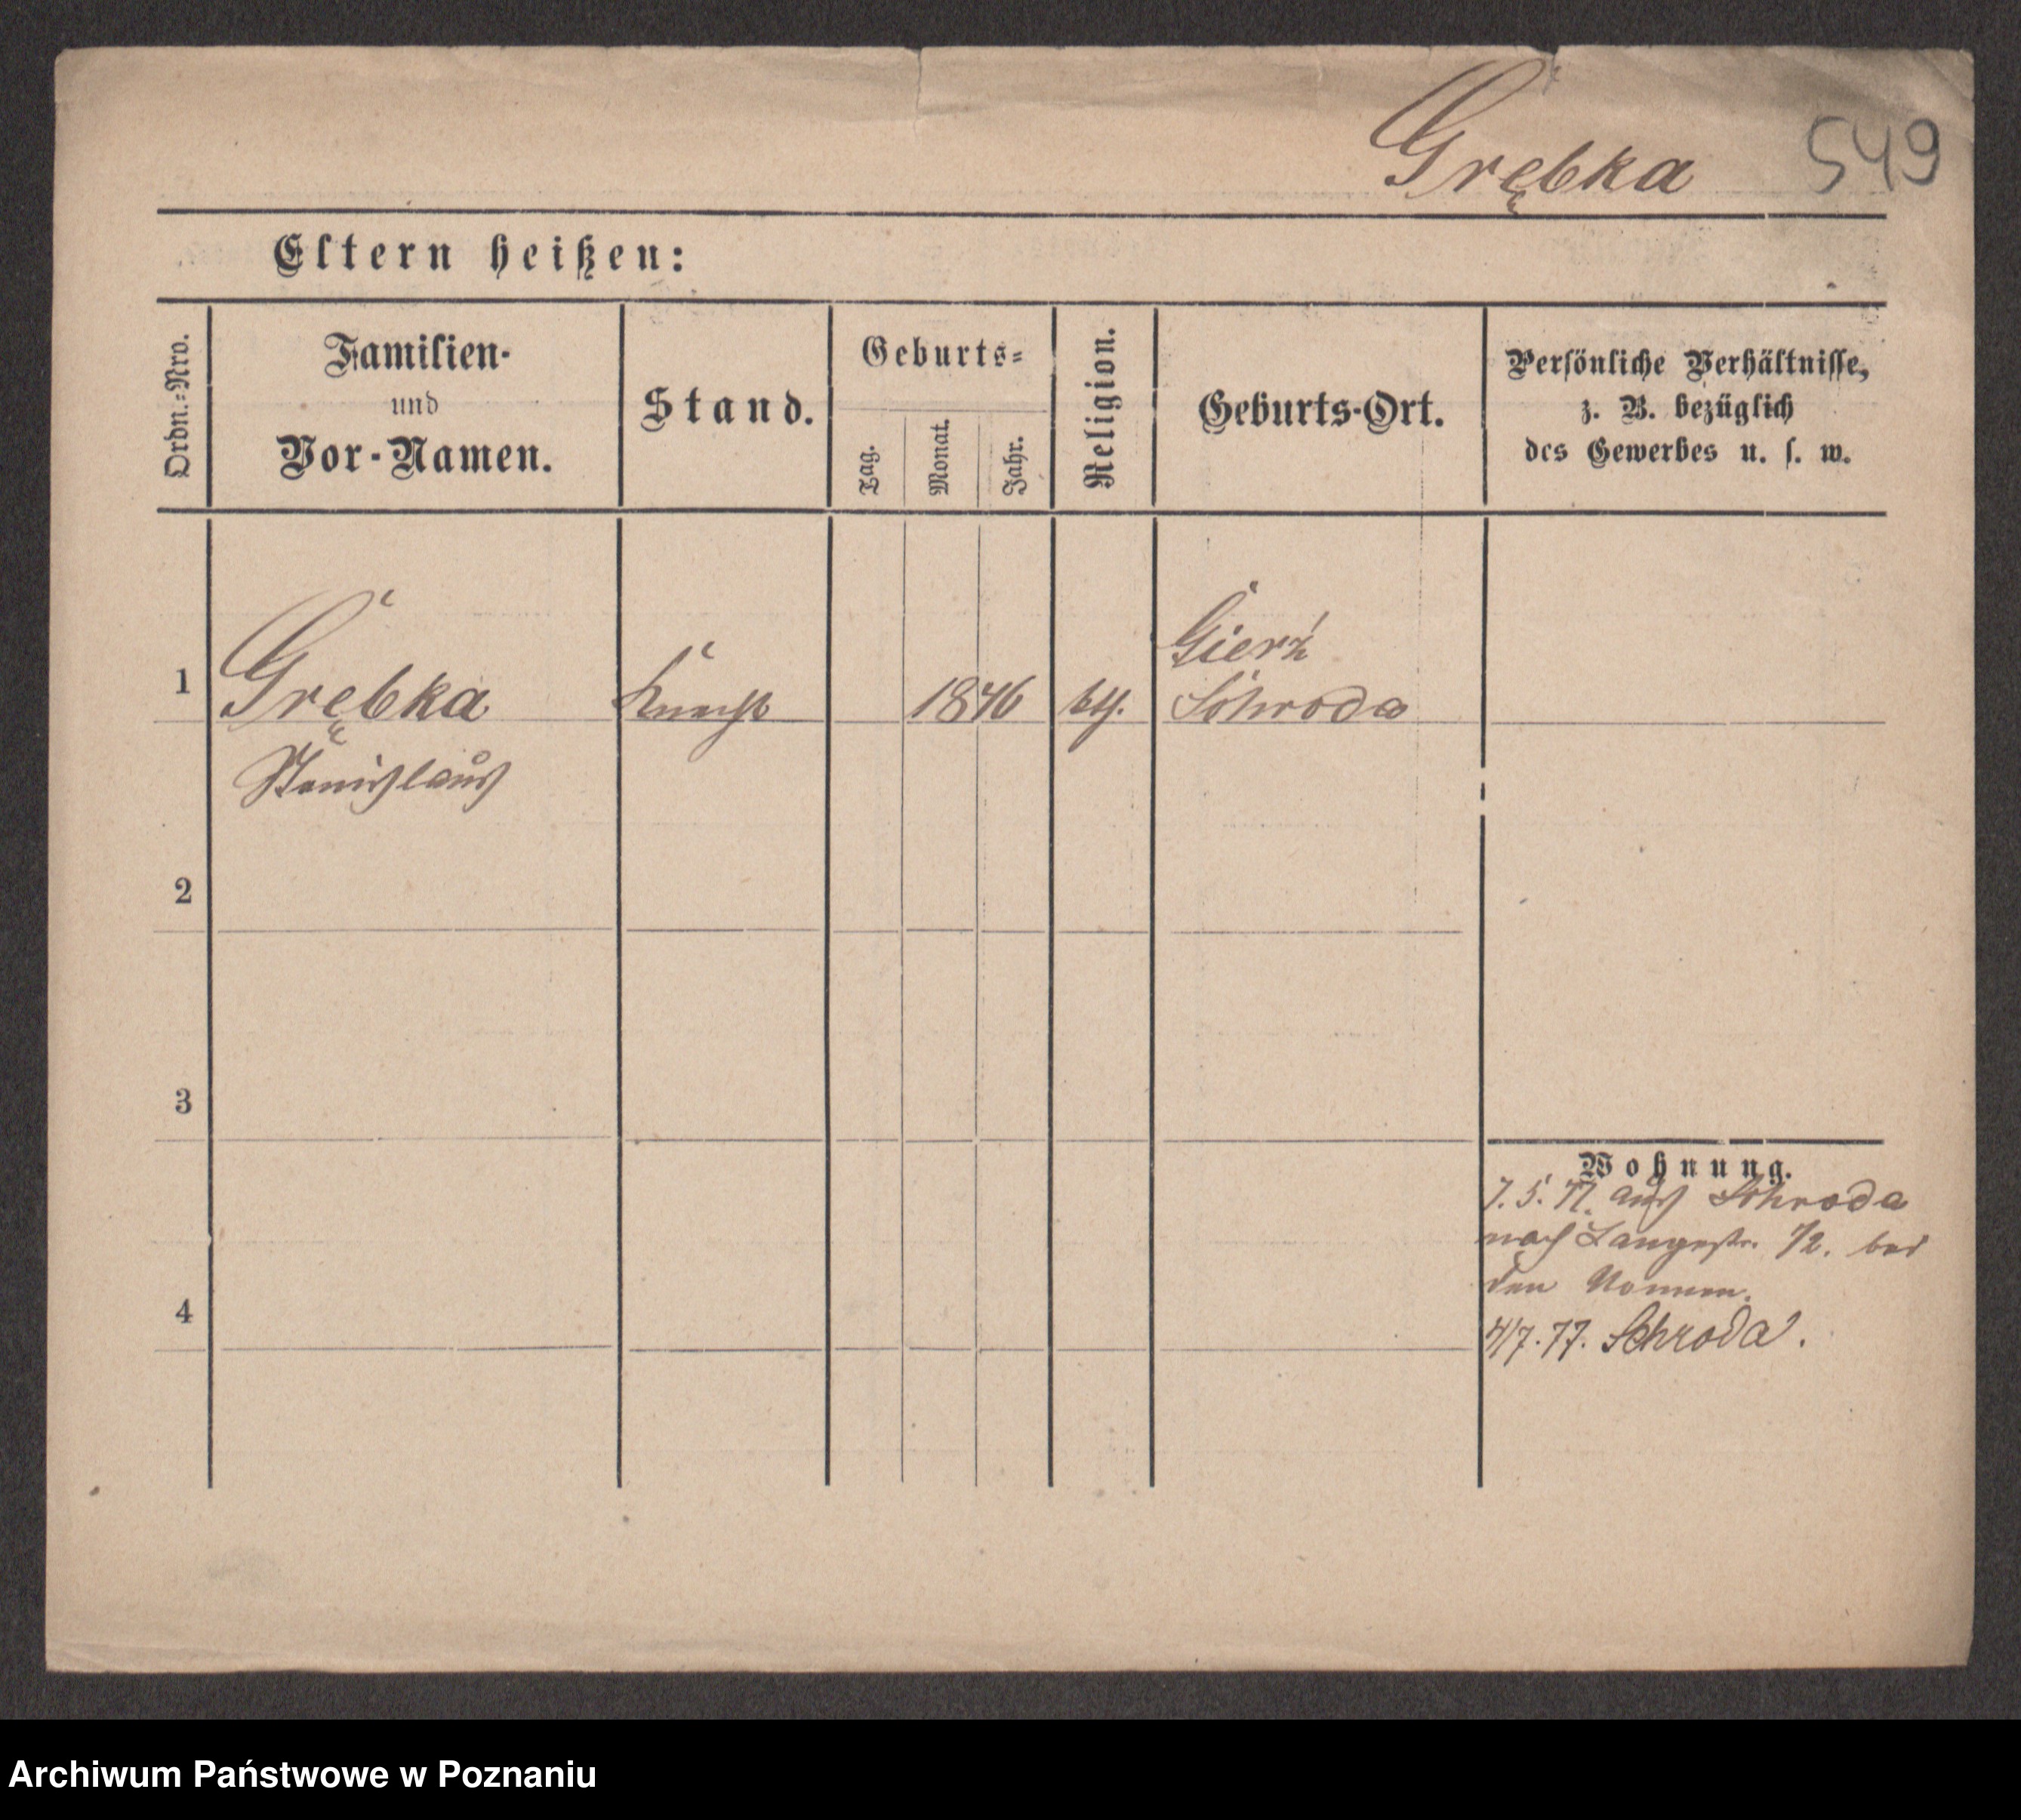 Grębka 549
Eltern heißen:
Ordn.-Nro.
Familien-
und
Vor-Namen.
Stand.
Geburts-
Tag.
Monat.
Jahr.
Religion.
Geburts-Ort.
Persönliche Verhältnisse,
z. B. bezüglich
des Gewerbes u. s. w.
1 Grębka Knecht 1846 kth. Gierz
Schroda
Stanislaus
2
3
Wohnung.
7. 5. 77. aus Schroda
nach Langestr. 72. bei
den Nonnen.
4
4/7.77. Schroda.
Archiwum Państwowe w Poznaniu